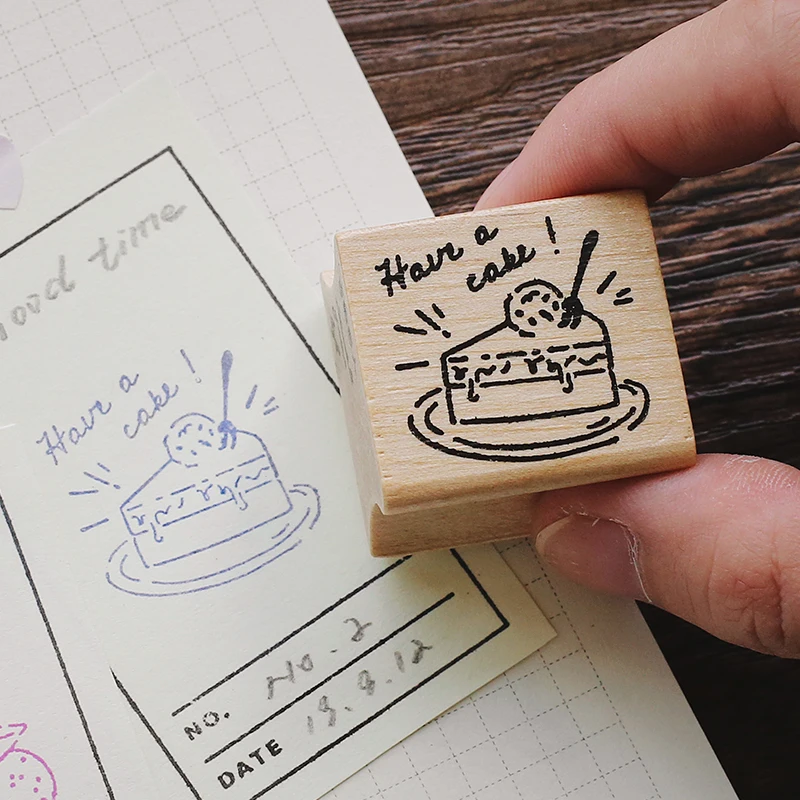 Have a
cake!
good time
Have a
cake!
NO. No. 2
DATE 19.8.12